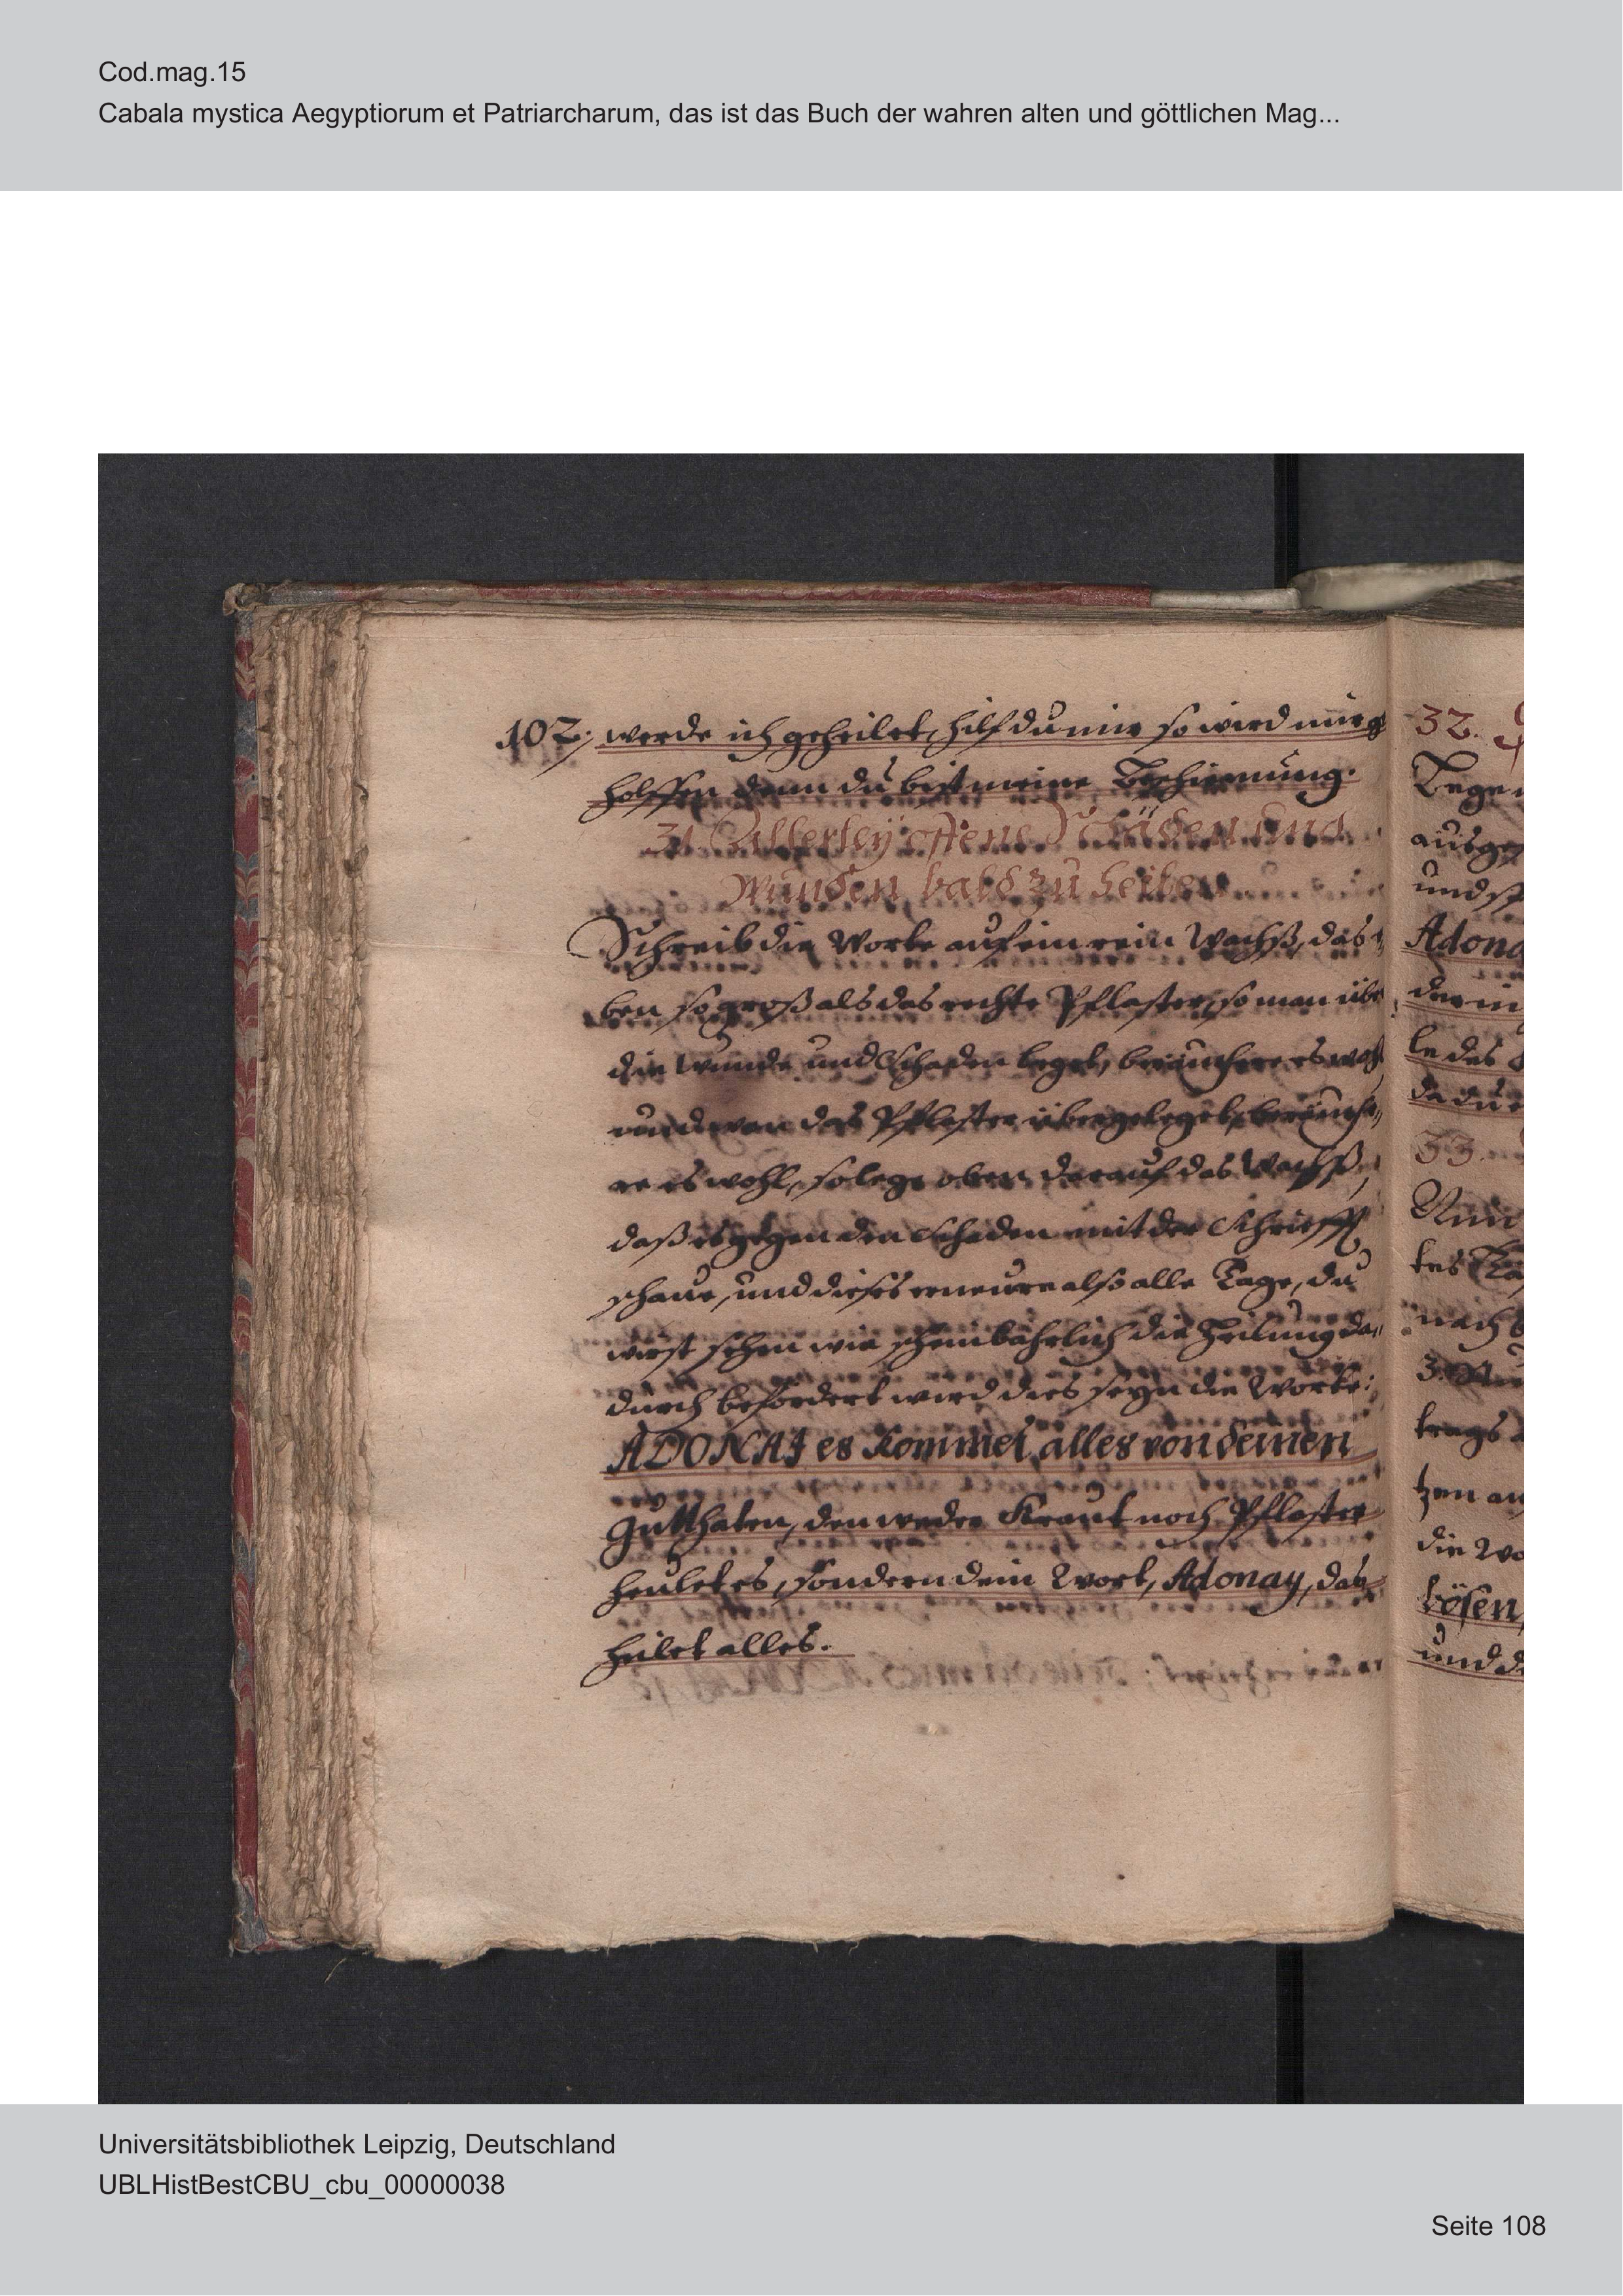 Cod.mag.15
Cabala mystica Aegyptiorum et Patriarcharum, das ist das Buch der wahren alten und göttlichen Mag...
102. werde ich geheilet, hilf du mir so wird mir g
holffen denn du bist meine
31. Allerley offene Schäden und
Wunden bald zu heilen
Schreib die Worte auf ein rein Wachß, das
ben so groß als das rechte Pflaster, so man übe
die Wunde und Schaden leget, beräuchere es wohl
das Pflaster übergelegt, beräuche,
re es wohl, so lege oben darauf das Wachß,
daß es gegen den Schaden mit der Schrifft
schaue, und dieses erneure also alle Tage, du
wirst sehen wie scheinbahrlich die Heilung da,
durch befördert wird dies seyn die Worte:
ADONAJ es kommet alles von deinen
Gutthaten, den weder Kraut noch Pflaster
heulet es, sondern dein Wort, Adonay, das
heilet alles.
32.
Tege
ausge
und
Adona
der in
le des
da du
33.
tes
nach
3.
trags
tzen an
die Wo
bösen
und d
Universitätsbibliothek Leipzig, Deutschland
UBLHistBestCBU_cbu_00000038
Seite 108